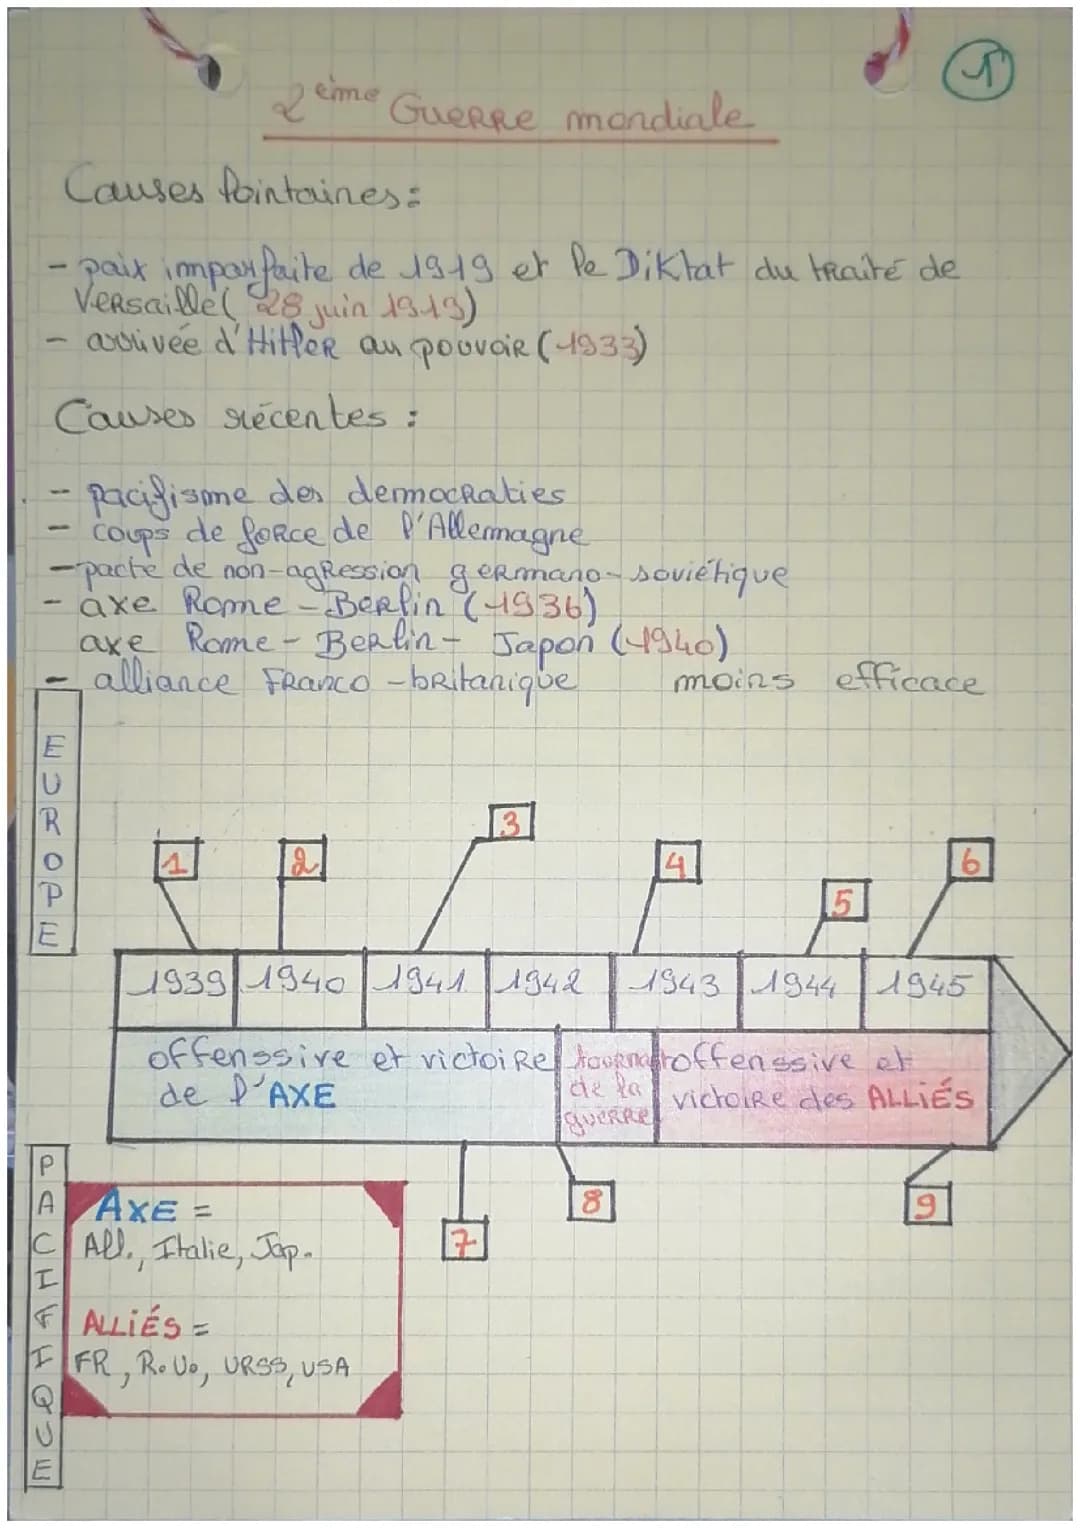 1
2eime Guerre mondiale
Causes lointaines:
- paix imparfaite de 1919 et le Diktat du traité de
Versaille( 28 juin 1919)
- arrivée d'Hitler au pouvoir (1933)
Causes récentes :
- pacifisme des democraties
- coups de force de l'Allemagne
- pacte de non-agression germano-soviétique
- axe Rome - Berlin (1936)
axe Rome - Berlin - Japon (1940)
- alliance Franco-britanique moins efficace
EUROPE
3
1 2 4 6
5
1939 1940 1941 1942 1943 1944 1945
offenssive et victoire
de l'AXE
tournant
de la
guerre
offenssive et
victoire des ALLIÉS
PACIFIQUE
8 9
7
AXE =
All., Italie, Jap.
ALLIÉS =
FR, R.U., URSS, USA